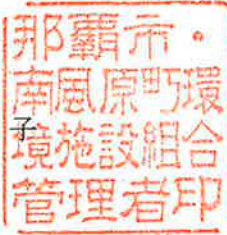 那覇市・
南風原町環
境施設組合
管理者印
子